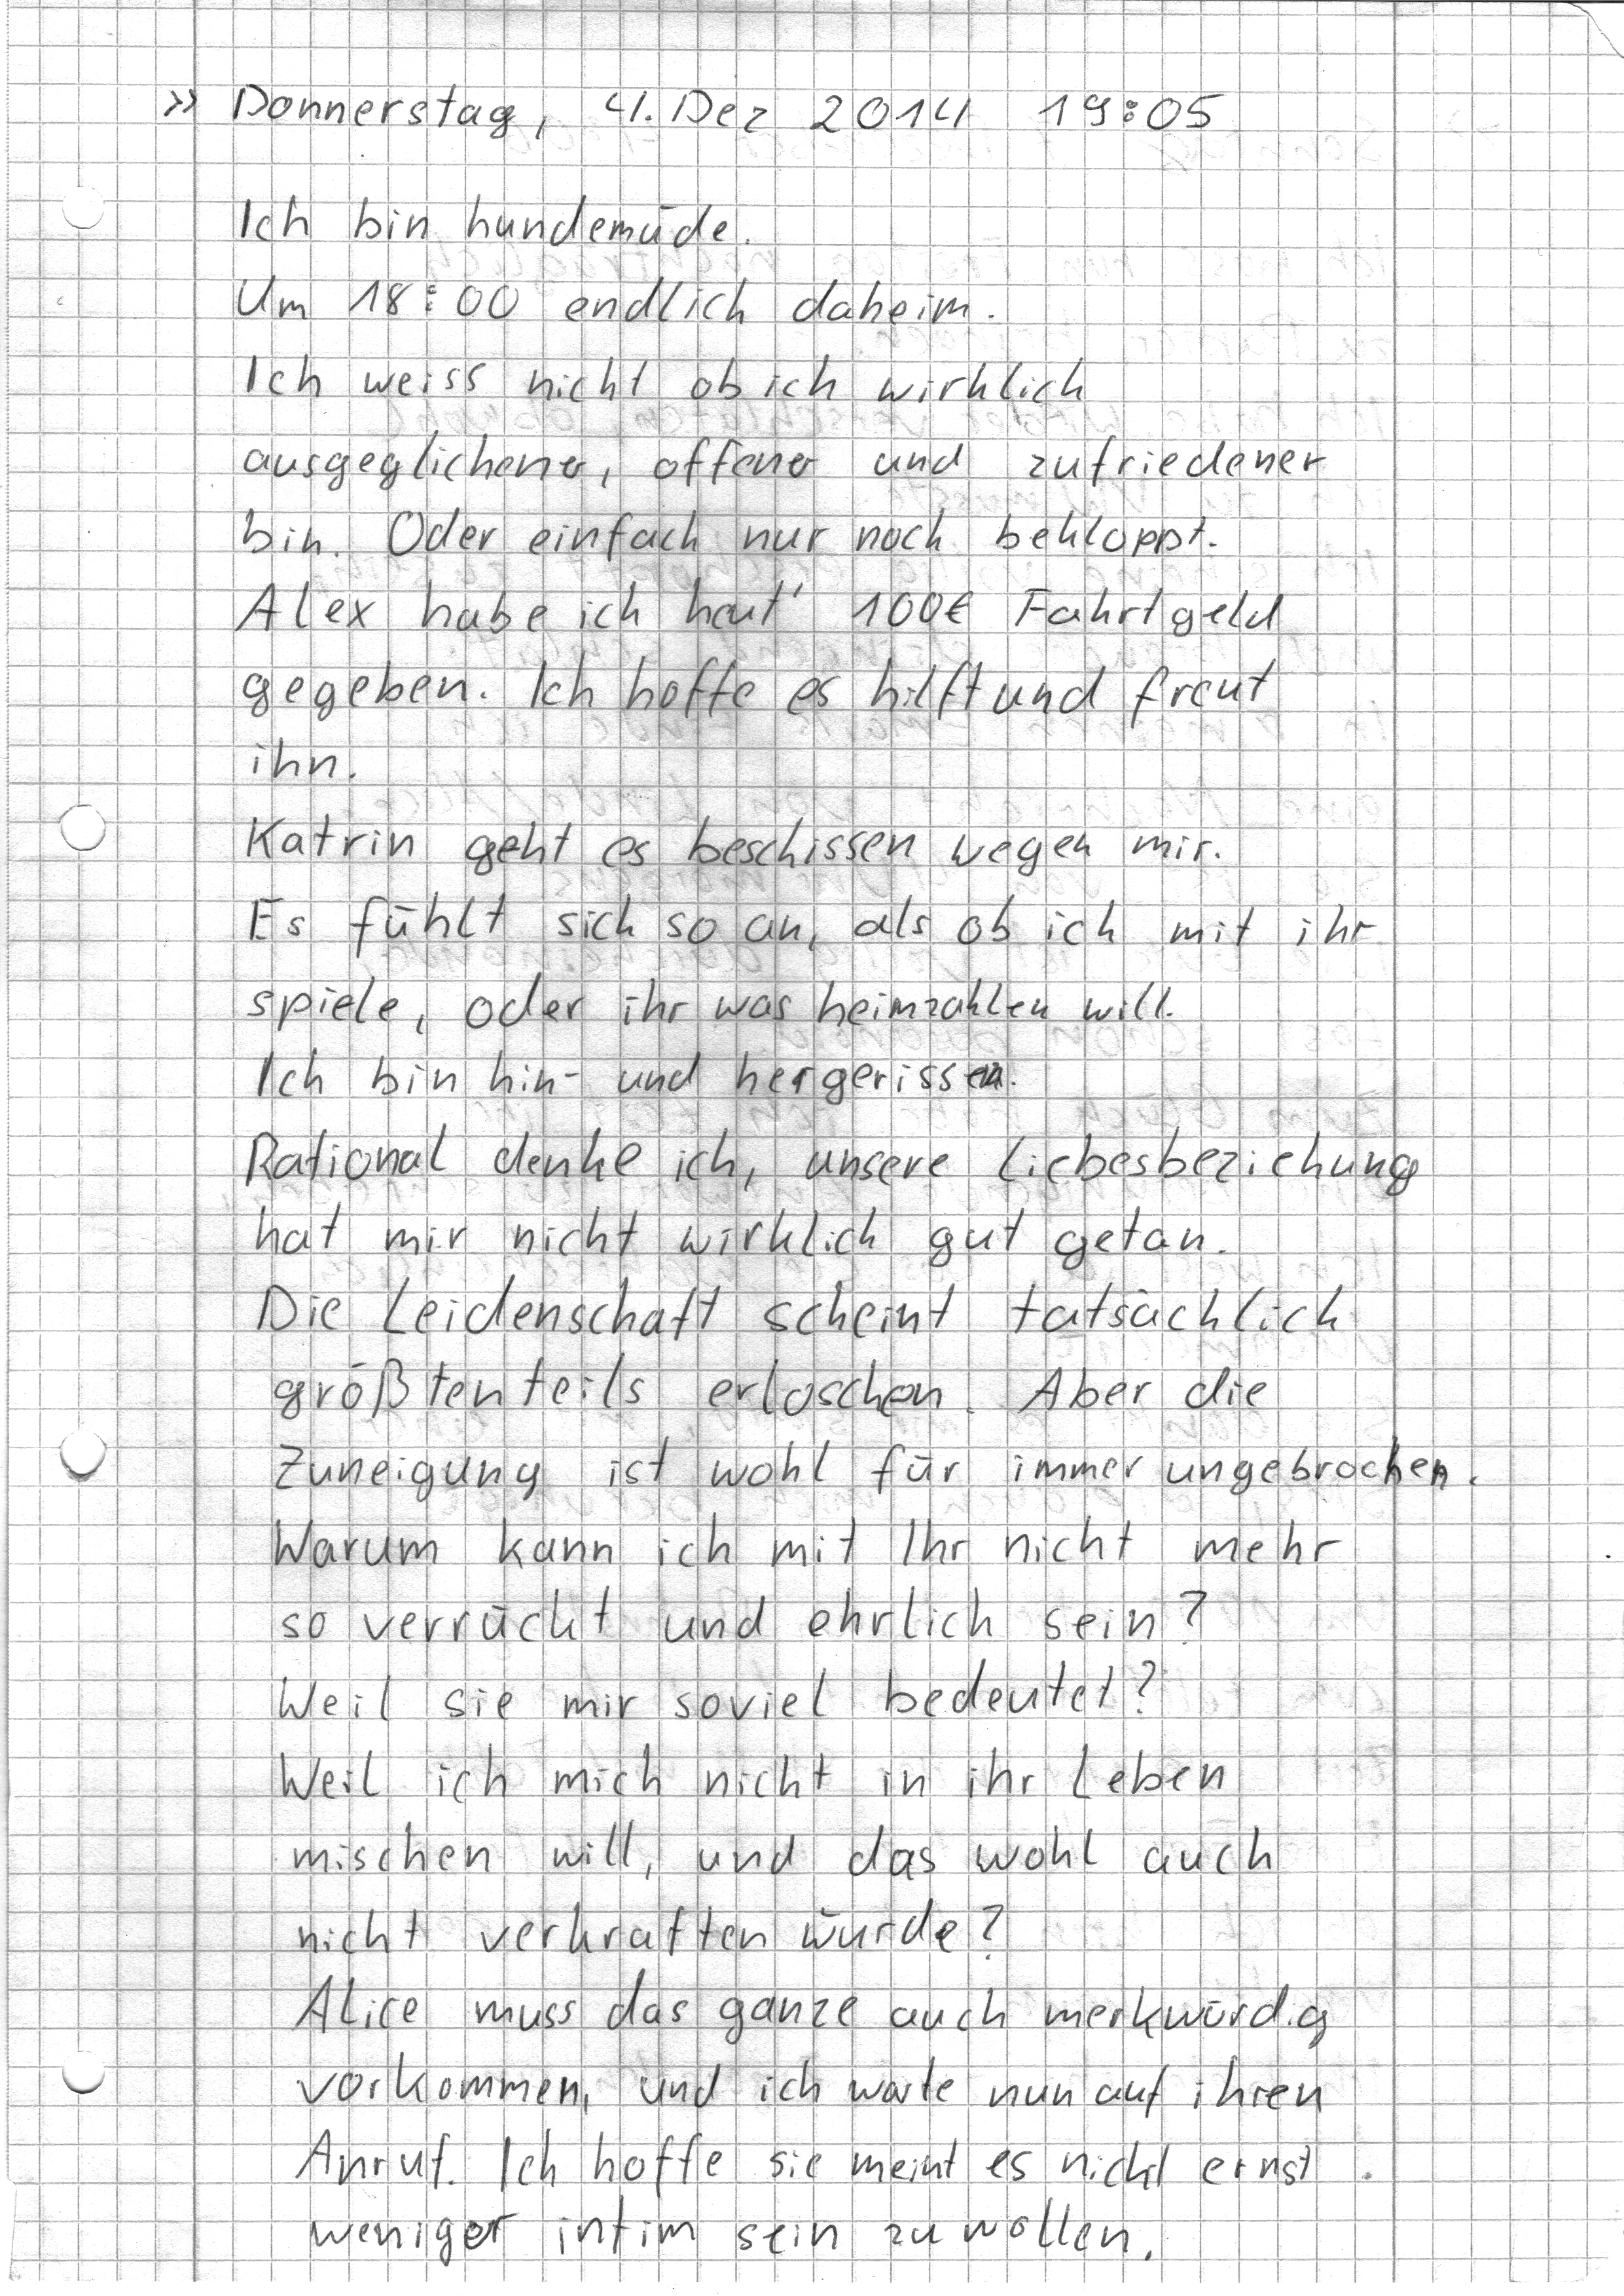 >> Donnerstag, 4. Dez 2014 19:05
Ich bin hundemüde.
Um 18:00 endlich daheim.
Ich weiss nicht ob ich wirklich
ausgeglichener, offener und zufriedener
bin. Oder einfach nur noch bekloppt.
Alex habe ich heut' 100€ Fahrtgeld
gegeben. Ich hoffe es hilft und freut
ihn.
Katrin geht es beschissen wegen mir.
Es fühlt sich so an, als ob ich mit ihr
spiele, oder ihr was heimzahlen will.
Ich bin hin- und hergerissen.
Rational denke ich, unsere Liebesbeziehung
hat mir nicht wirklich gut getan.
Die Leidenschaft scheint tatsächlich
größtenteils erloschen. Aber die
Zuneigung ist wohl für immer ungebrochen.
Warum kann ich mit Ihr nicht mehr
so verrückt und ehrlich sein?
Weil sie mir soviel bedeutet?
Weil ich mich nicht in ihr Leben
mischen will, und das wohl auch
nicht verkraften würde?
Alice muss das ganze auch merkwürdig
vorkommen, und ich warte nun auf ihren
Anruf. Ich hoffe sie meint es nicht ernst
weniger intim sein zu wollen.